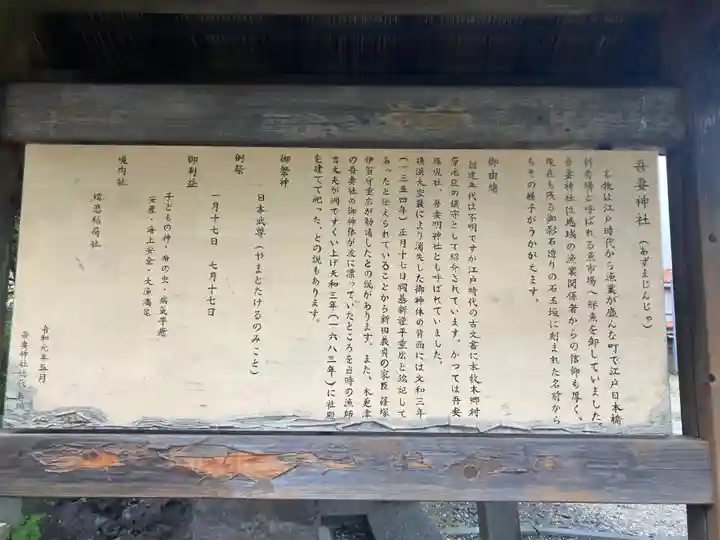 吾妻神社（あずまじんじゃ）
本牧は江戸時代から漁業が盛んな町で江戸日本橋
新肴場と呼ばれる魚市場へ鮮魚を卸していました。
吾妻神社は地域の漁業関係者からの信仰も厚く、
現在も残る御影石造りの石玉垣に刻まれた名前から
もその様子がうかがえます。
御由緒
創建年代は不明ですが江戸時代の古文書に本牧本郷村
箕輪区の鎮守として紹介されています。かつては吾妻
権現社、吾妻明神社とも呼ばれていました。
横浜大空襲により消失した御神体の背面には文和三年
（一三五四年）正月十七日観基新證平重広と銘記して
あったと伝えられていることから新田義貞の家臣篠塚
伊賀守重広が勧請したとの説があります。また、木更津
の吾妻社の御神体が波に漂っていたところを当時の漁師
吉太夫が網ですくい上げ天和三年（一六八三年）に社殿
を建てて祀った、との説もあります。
御祭神
日本武尊（やまとたけるのみこと）
例祭
一月十七日　七月十七日
御利益
子どもの神・疳の虫・病気平癒
安産・海上安全・大漁満足
境内社
稲荷社
令和元年五月
吾妻神社